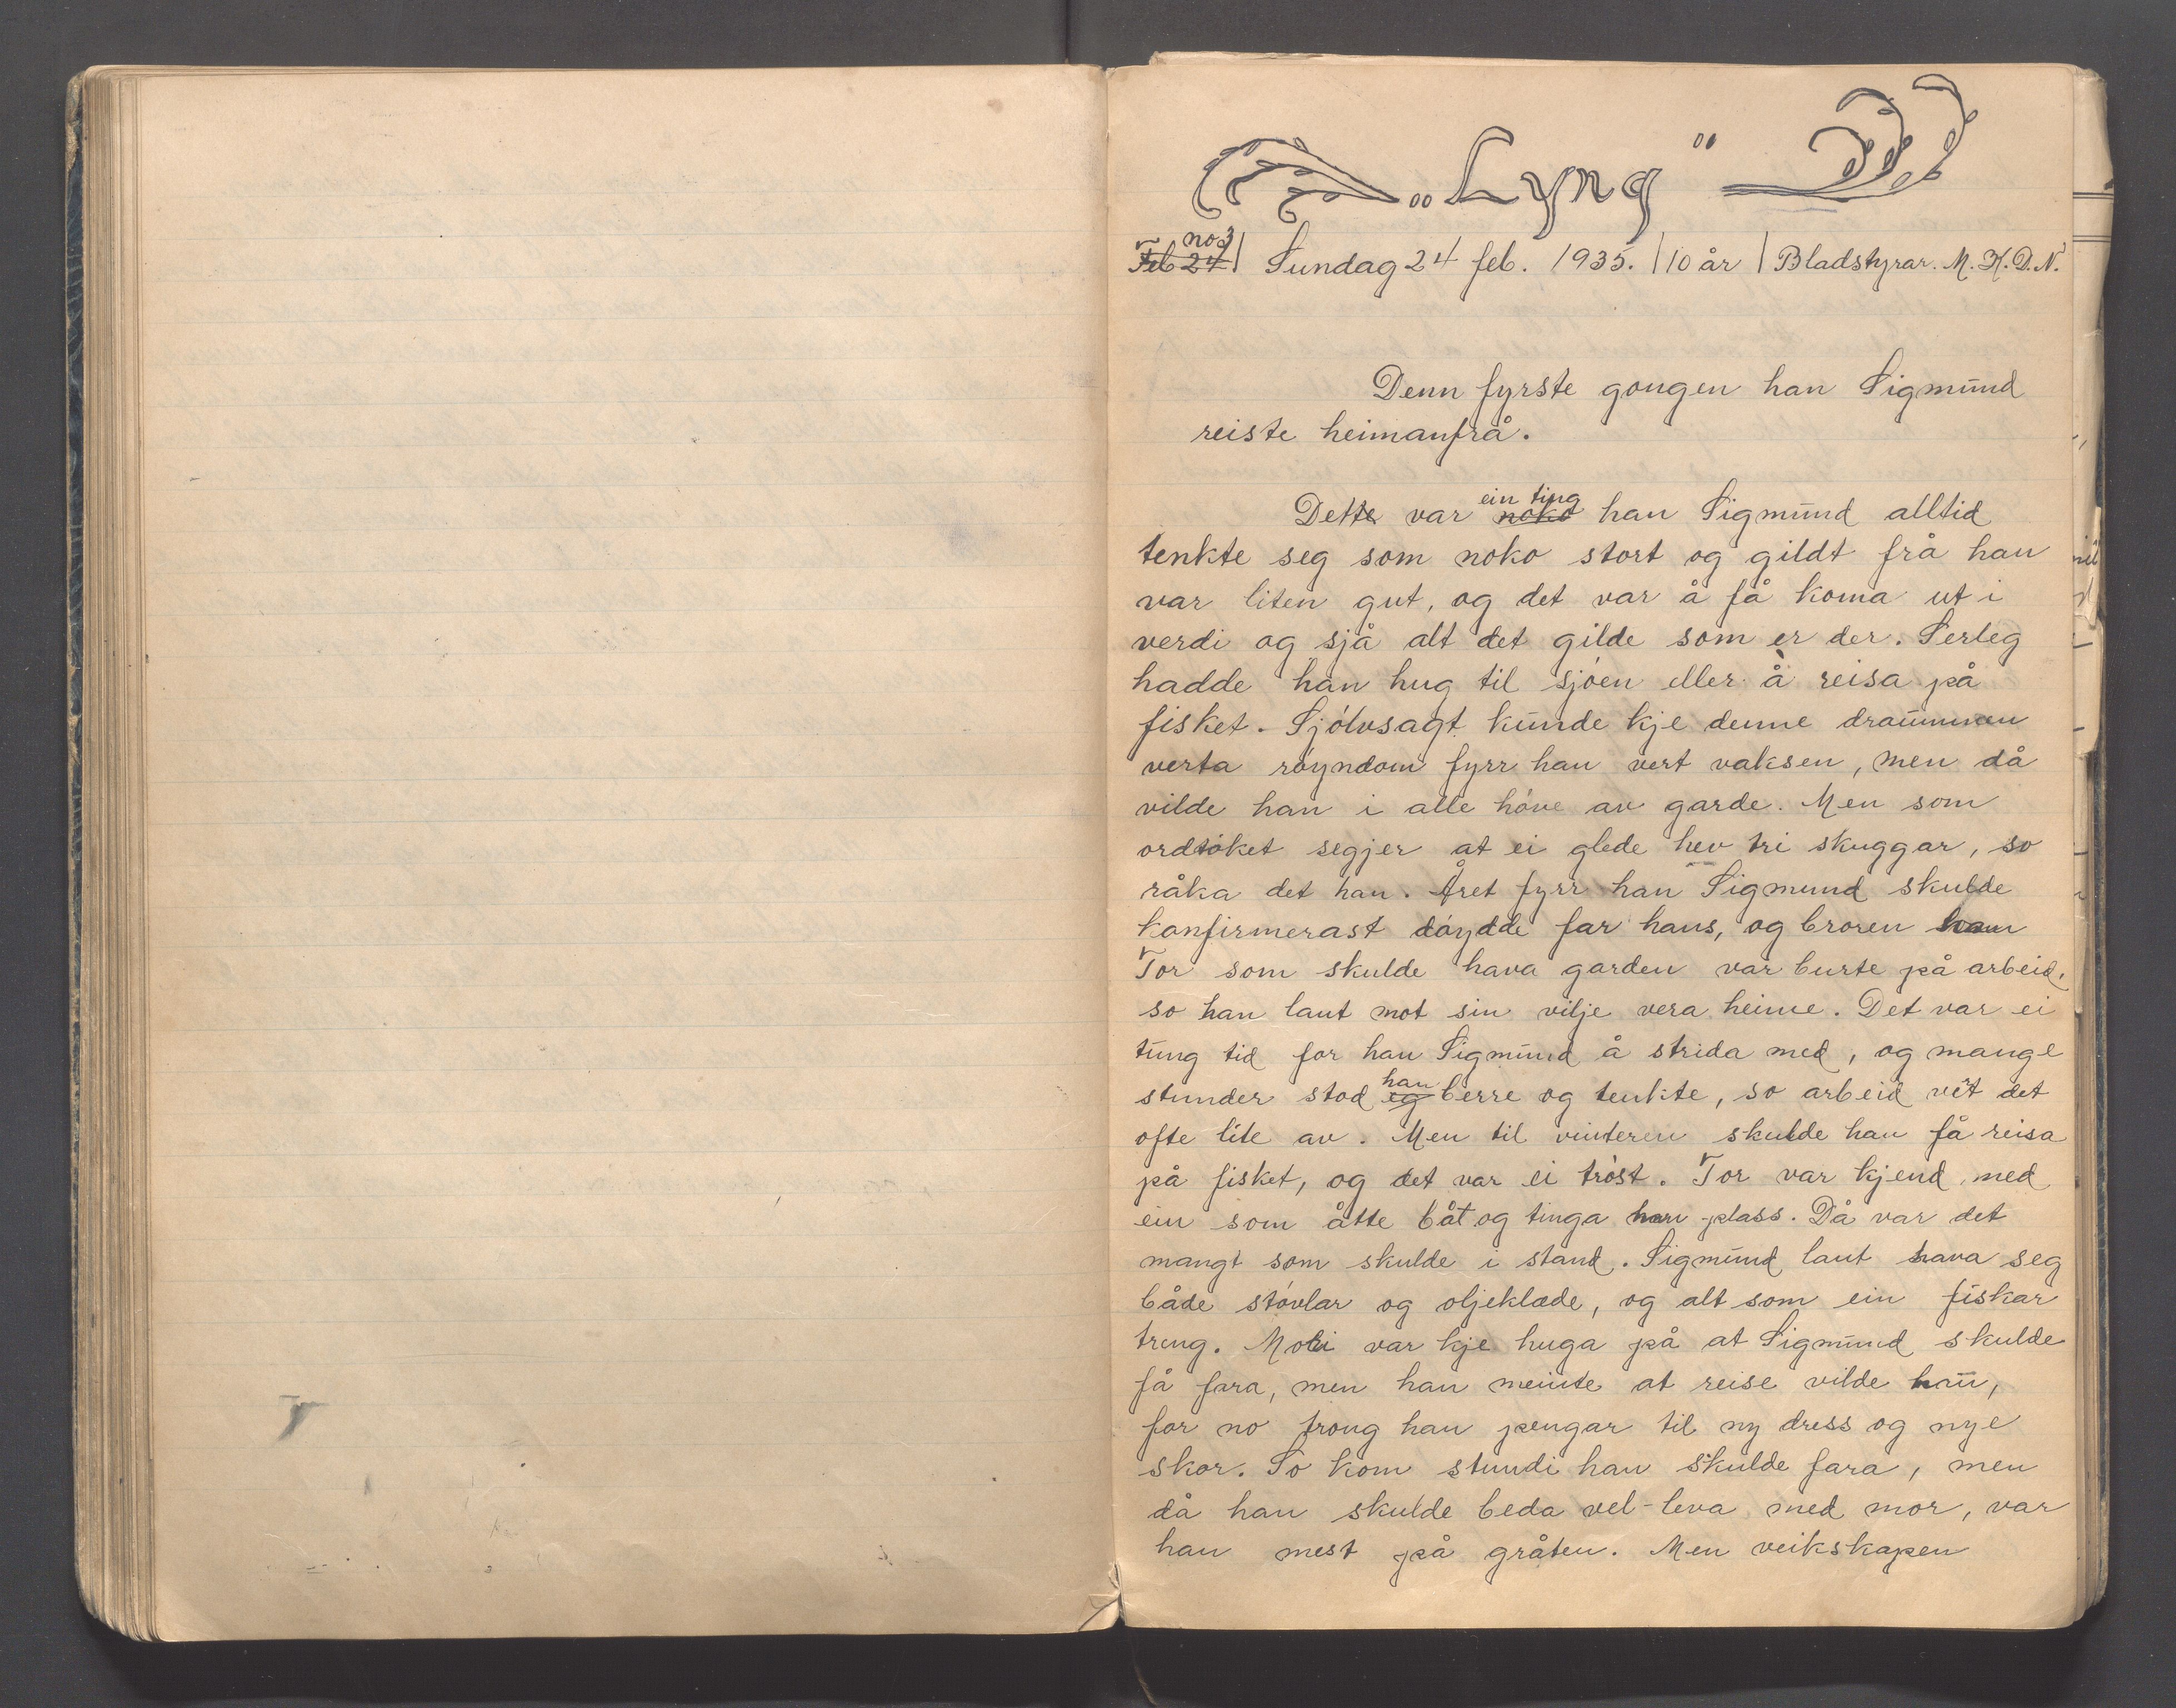 „Lyng"
no 3
Feb 24 | Sundag 24 feb. 1935. | 10 år | Bladstyrar. M. H. D. N.
Denn fyrste gongen han Sigmund
reiste heimanfrå.
ein ting
Dette var noko han Sigmund alltid
tenkte seg som noko stort og gildt frå han
var liten gut, og det var å få koma ut i
verdi og sjå alt det gilde som er der. Serleg
hadde han hug til sjóen eller å reisa på
fisket. Sjólvsagt kunde kje denne draumen
verta róyndom fyrr han vert vaksen, men då
vilde han i alle hóve av garde. Men som
ordtóket segjer at ei glede hev tri skuggar, so
råka det han. Året fyrr han Sigmund skulde
konfirmerast dóydde far hans, og broren han
Tor som skulde hava garden var burte på arbeid,
so han laut mot sin vilje vera heime. Det var ei
tung tid for han Sigmund å strida med, og mange
han
stunder stod eg berre og tenkte, so arbeid vêt det
ofte lite av. Men til vinteren skulde han få reisa
på fisket, og det var ei tróst. Tor var kjend med
ein som åtte båt og tinga han plass. Då var det
mangt som skulde i stand. Sigmund laut hava seg
både stóvlar og oljeklæde, og alt som ein fiskar
treng. Mori var kje huga på at Sigmund skulde
få fara, men han meinte at reise vilde han,
for no trong han pengar til ny dress og nye
skor. So kom stundi han skulde fara, men
då han skulde beda vel-leva med mor, var
han mest på gråten. Men veikskapen